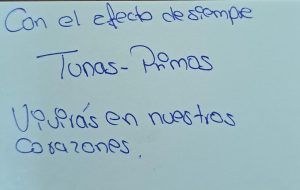 Con el efecto de siempre
Tunas-Primos
Vivirás en nuestros
corazones.